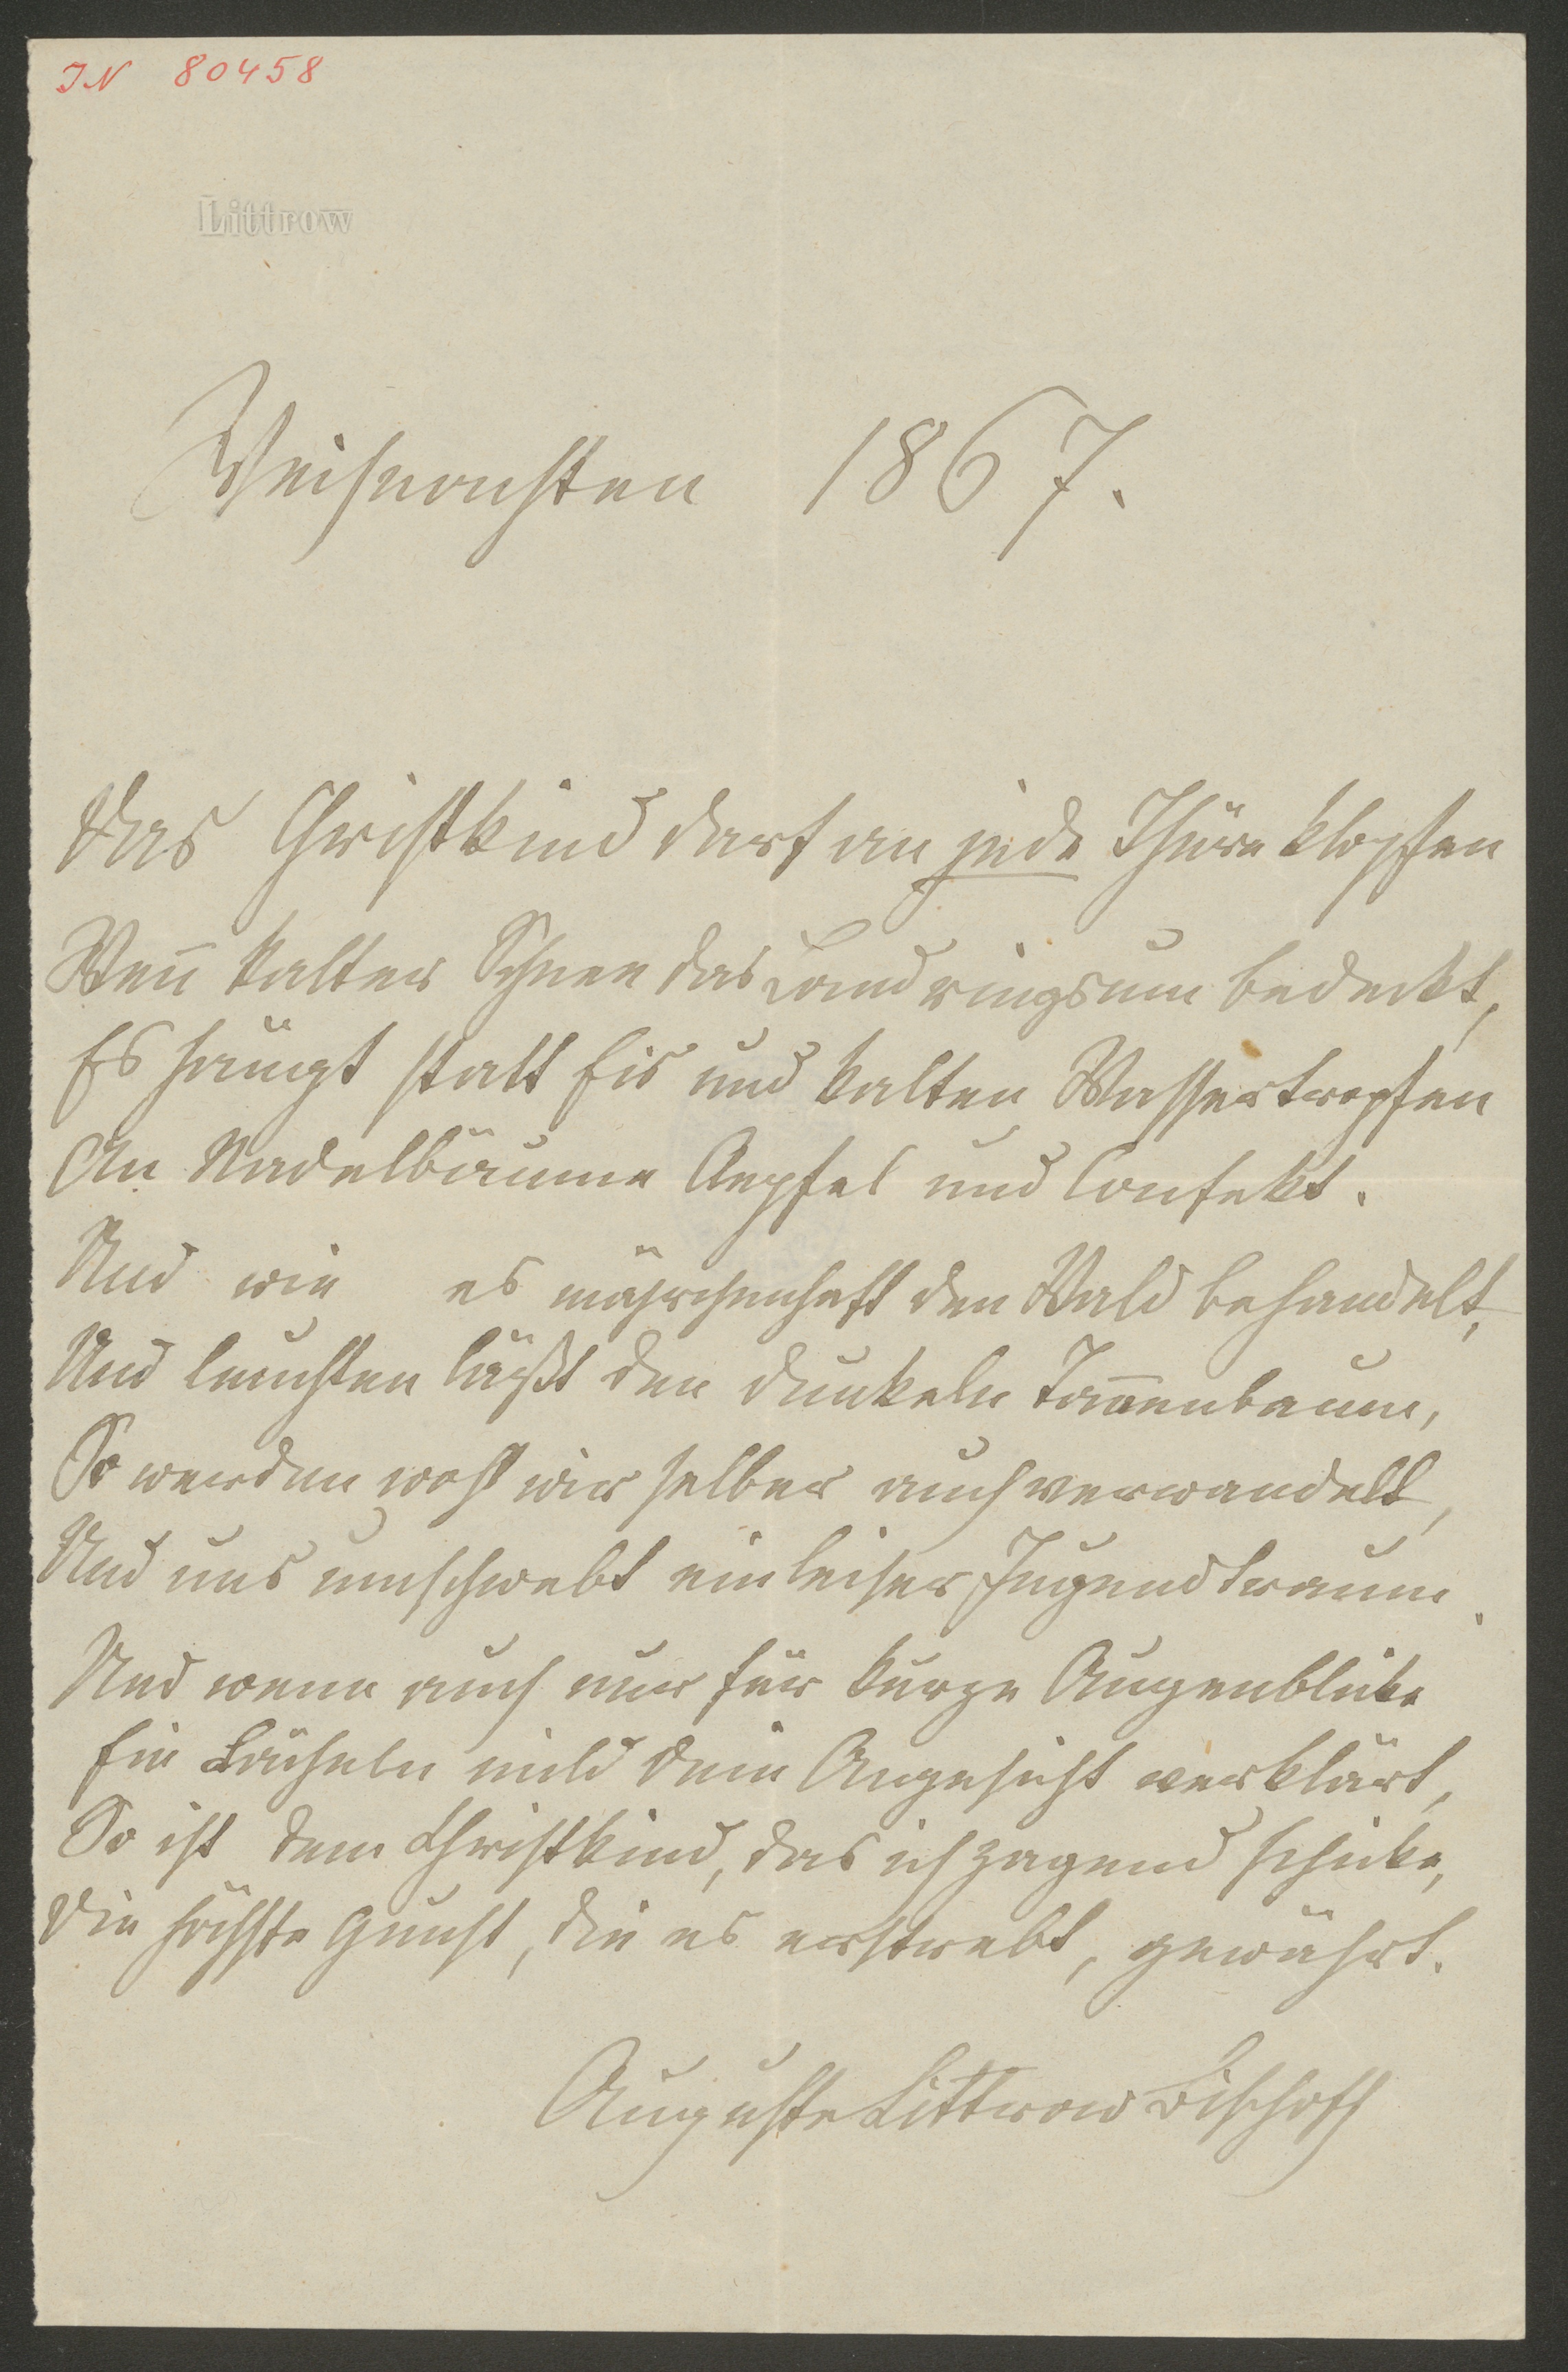 IN 80458
Littrow
Weihnachten 1867.
Das Christkind darf an jede Thüre klopfen
Wen̄ kalter Schnee das Land ringsum bedeckt,
Es hängt statt Eis und kalten Wassertropfen
An Nadelbäume Aepfel und Confekt.
Und wie es mährchenhaft den Wald behandelt,
Und leuchten läßt den dunkeln Tan̄enbaum,
So werden wohl wir selber auch verwandelt,
Und uns umschwebt ein leiser Jugendtraum.
Und wenn auch nur für kurze Augenblicke
Ein Lächeln mild dein Angesicht verklärt,
So ist dem Christkind, das ich zagend schicke,
Die höchste Gunst, die es erstrebt, gewährt.
Auguste Littrow Bischoff